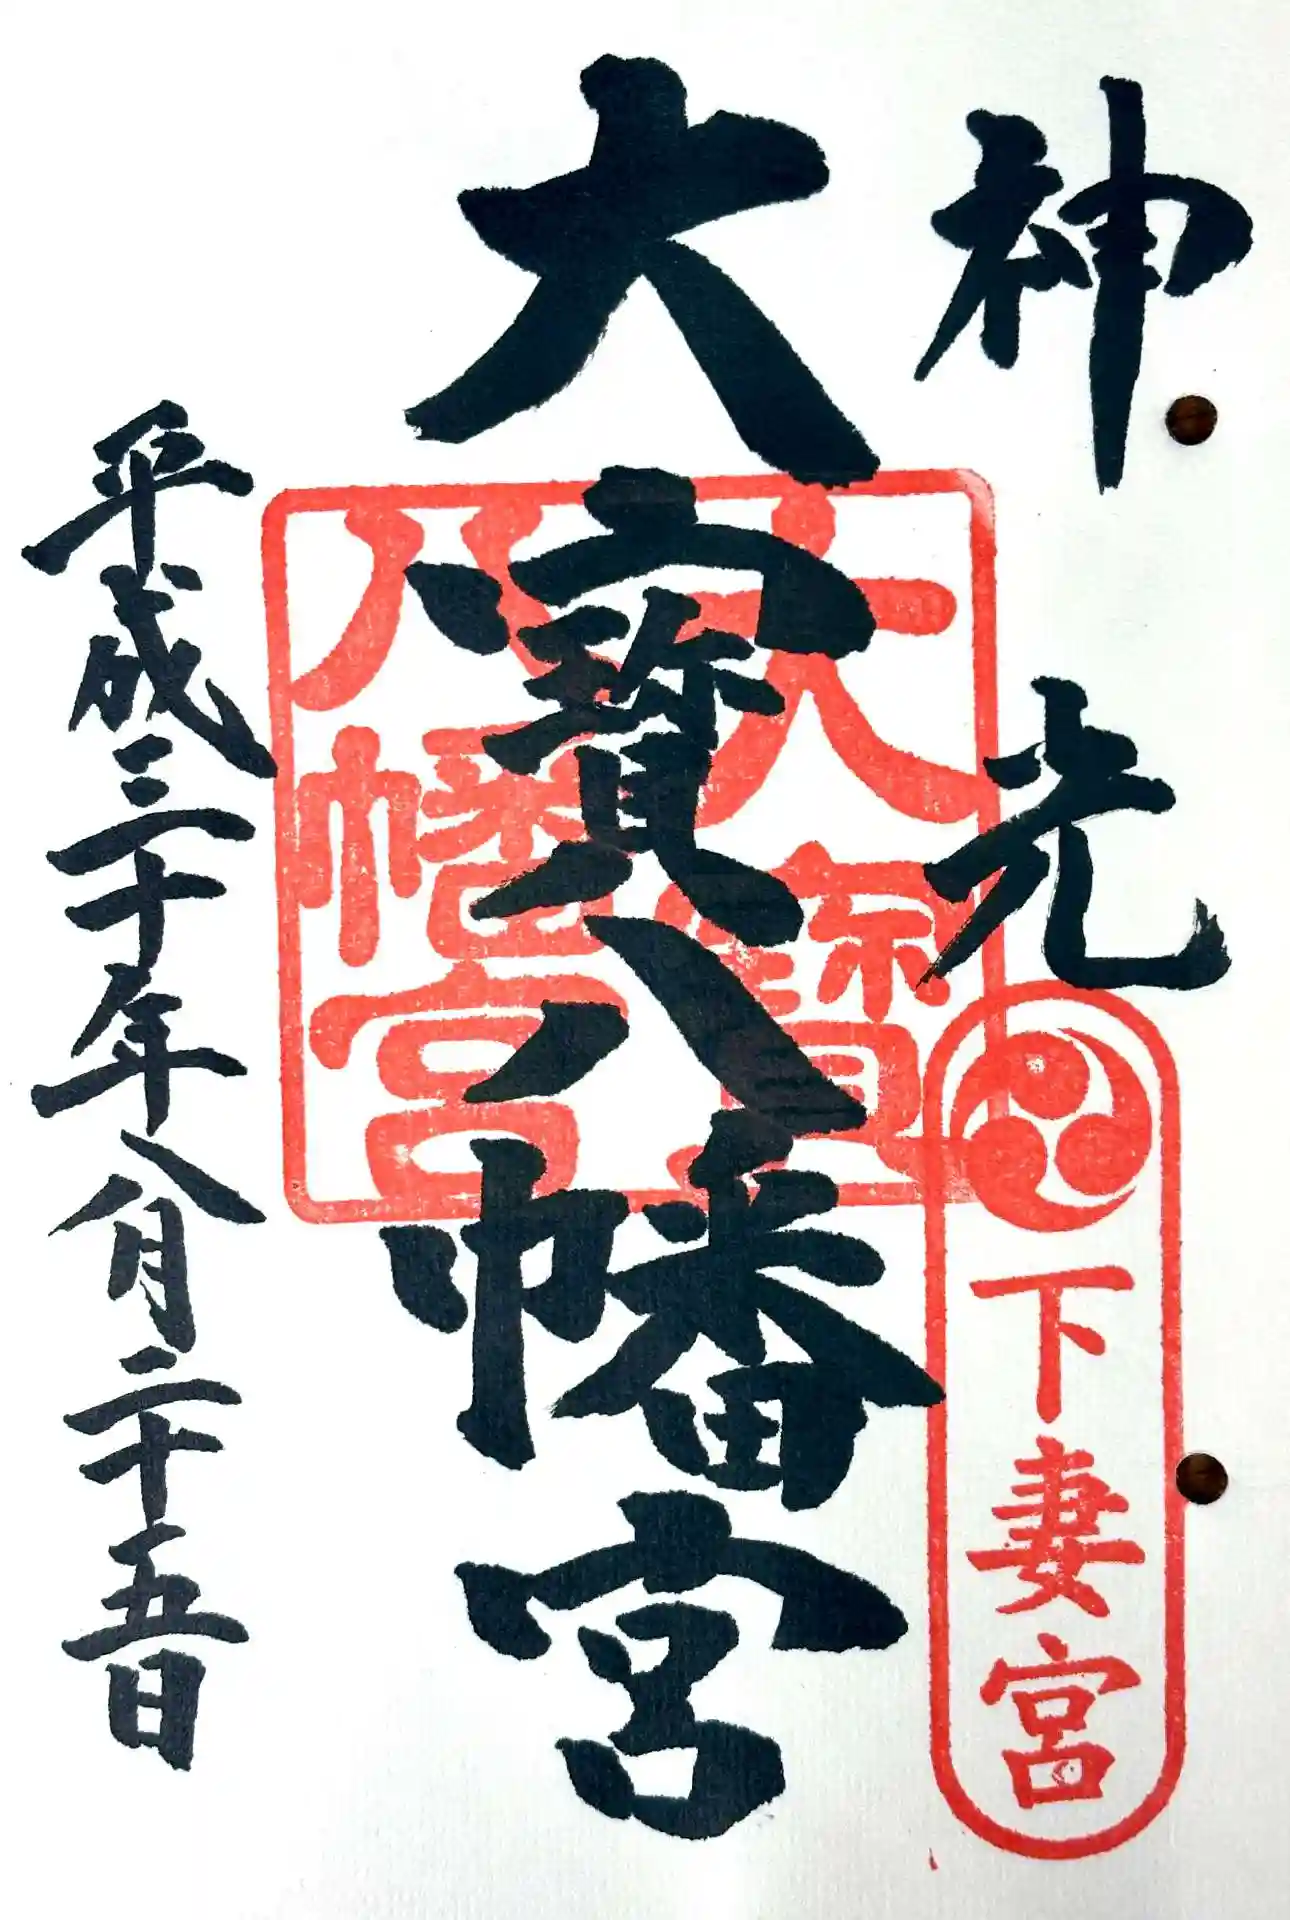 神光
下妻宮
大寳八幡宮
大寳
八幡宮
平成三十年八月二十五日